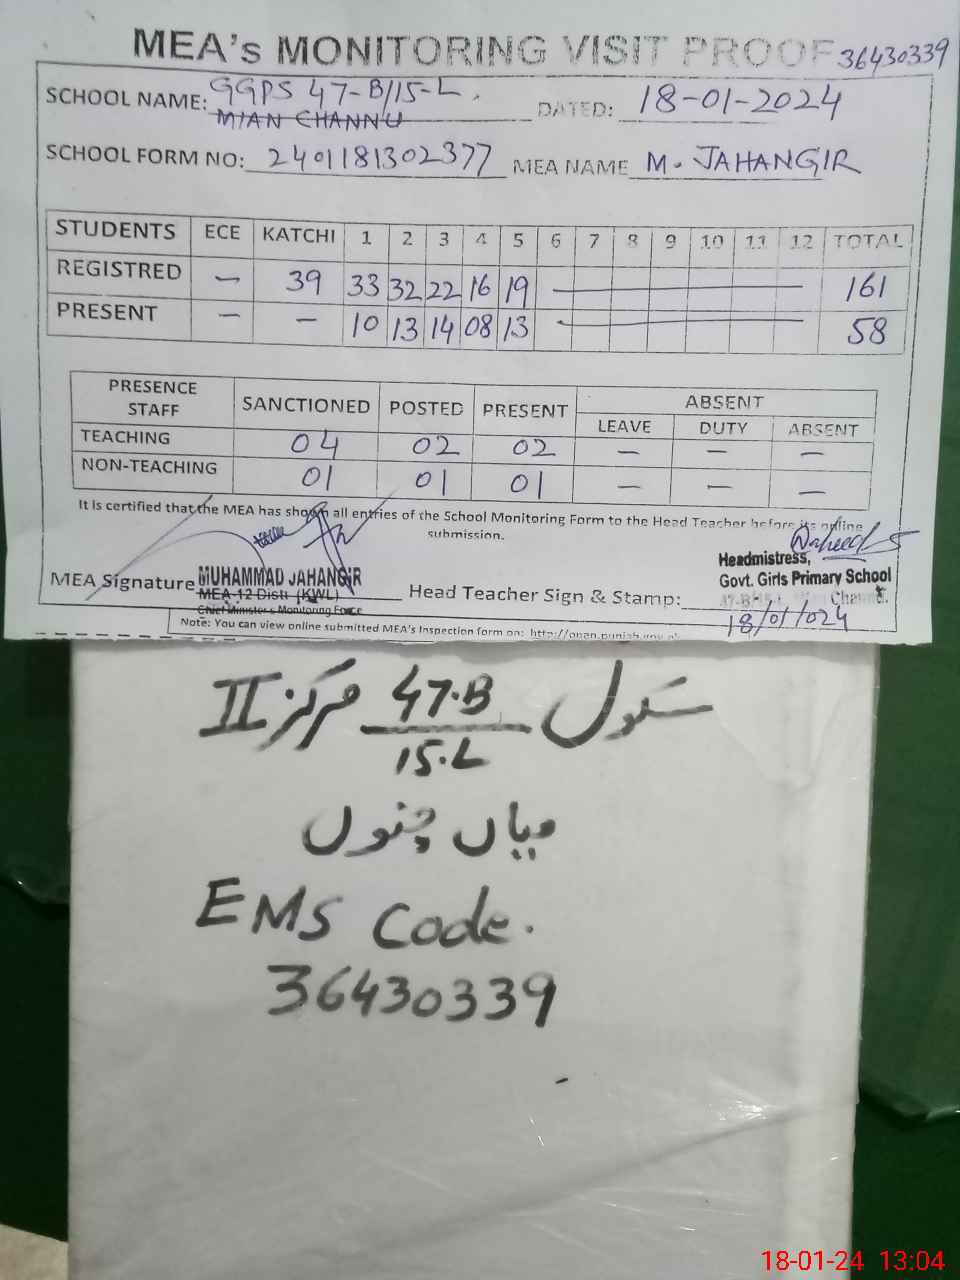 MEA's MONITORING VISIT PROOF 36430339
SCHOOL NAME: GGPS 47-B/15-L. DATED: 18-01-2024
MIAN CHANNU
SCHOOL FORM NO: 2401181302377 MEA NAME M. JAHANGIR
STUDENTS ECE KATCHI 1 2 3 4 5 6 7 8 9 10 11 12 TOTAL
REGISTRED — 39 33 32 22 16 19 — 161
PRESENT — — 10 13 14 08 13 — 58
PRESENCE STAFF SANCTIONED POSTED PRESENT ABSENT
LEAVE DUTY ABSENT
TEACHING 04 02 02 — — —
NON-TEACHING 01 01 01 — — —
It is certified that the MEA has shown all entries of the School Monitoring Form to the Head Teacher before its online
submission.
MEA Signature MUHAMMAD JAHANGIR
MEA-12 Distt (KWL)
Chief Minister's Monitoring Force
Head Teacher Sign & Stamp:
Headmistress,
Govt. Girls Primary School
47-B/15-L, Mian Channu.
18/01/024
Note: You can view online submitted MEA's Inspection form on: http://open.punjab.gov.pk
سکول 47.B/15.L مرکز II
میاں چنوں
EMS Code.
36430339
18-01-24 13:04